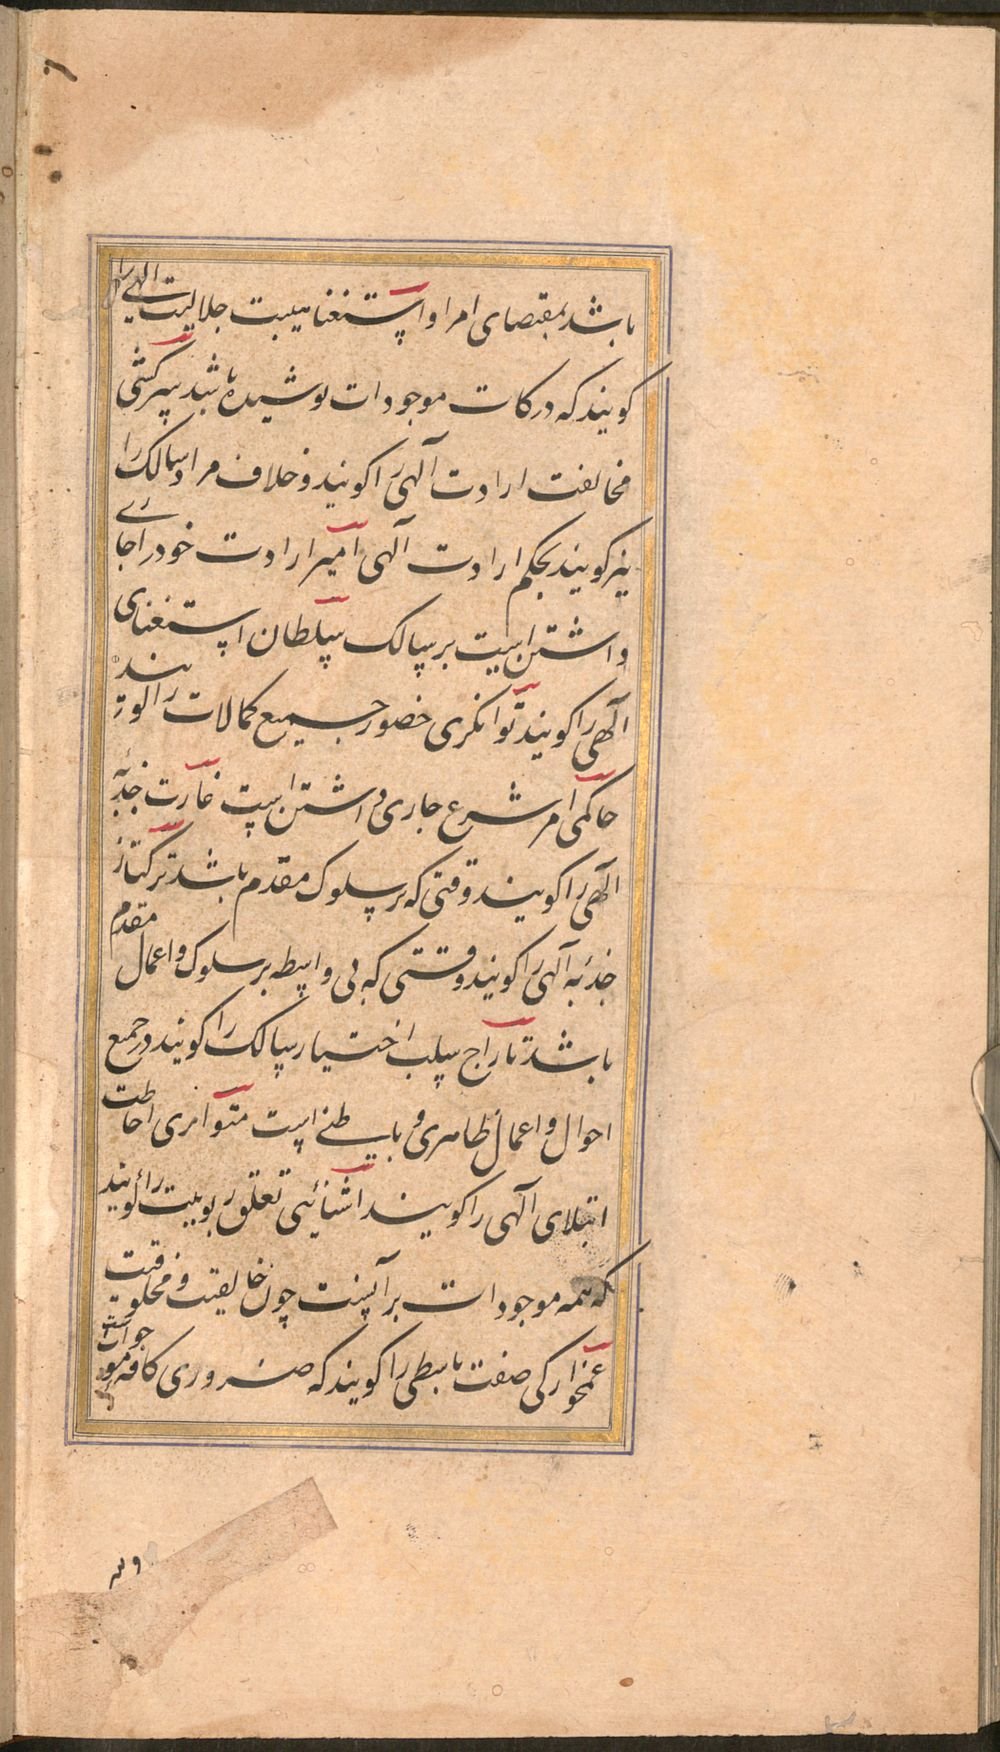 باشد بمقتضای امرا و استغنا هیبت جلالیت الهی را
کویند که در کات موجودات پوشیده باشد سرکشی
مخالفت ارادت الهی را کویند و خلاف مراد سالک را
نیز کویند بحکم ارادت الهی امیر ارادت خود را جاری
داشتن است بر سالک سلطان استغنای
الهی را کویند توانکری حضور جمیع کمالات را کویند
حاکمی امر شرع جاری داشتن است غارت جذبه
الهی را کویند وقتی که بر سلوک مقدم باشد ترکتاز
جذبه الهی را کویند وقتی که بی واسطه بر سلوک و اعمال مقدم
باشد تاراج سلب اختیار سالک را کویند در جمیع
احوال و اعمال ظاهری و باطنی است امری احاطت
ابتلای الهی را کویند آشنائی تعلق ربوبیت را کویند
که همه موجودات برآنست چون خالقیت و مخلوقیت
غمخوارکی صفت باسطی را کویند که ضروری کافه موجودات